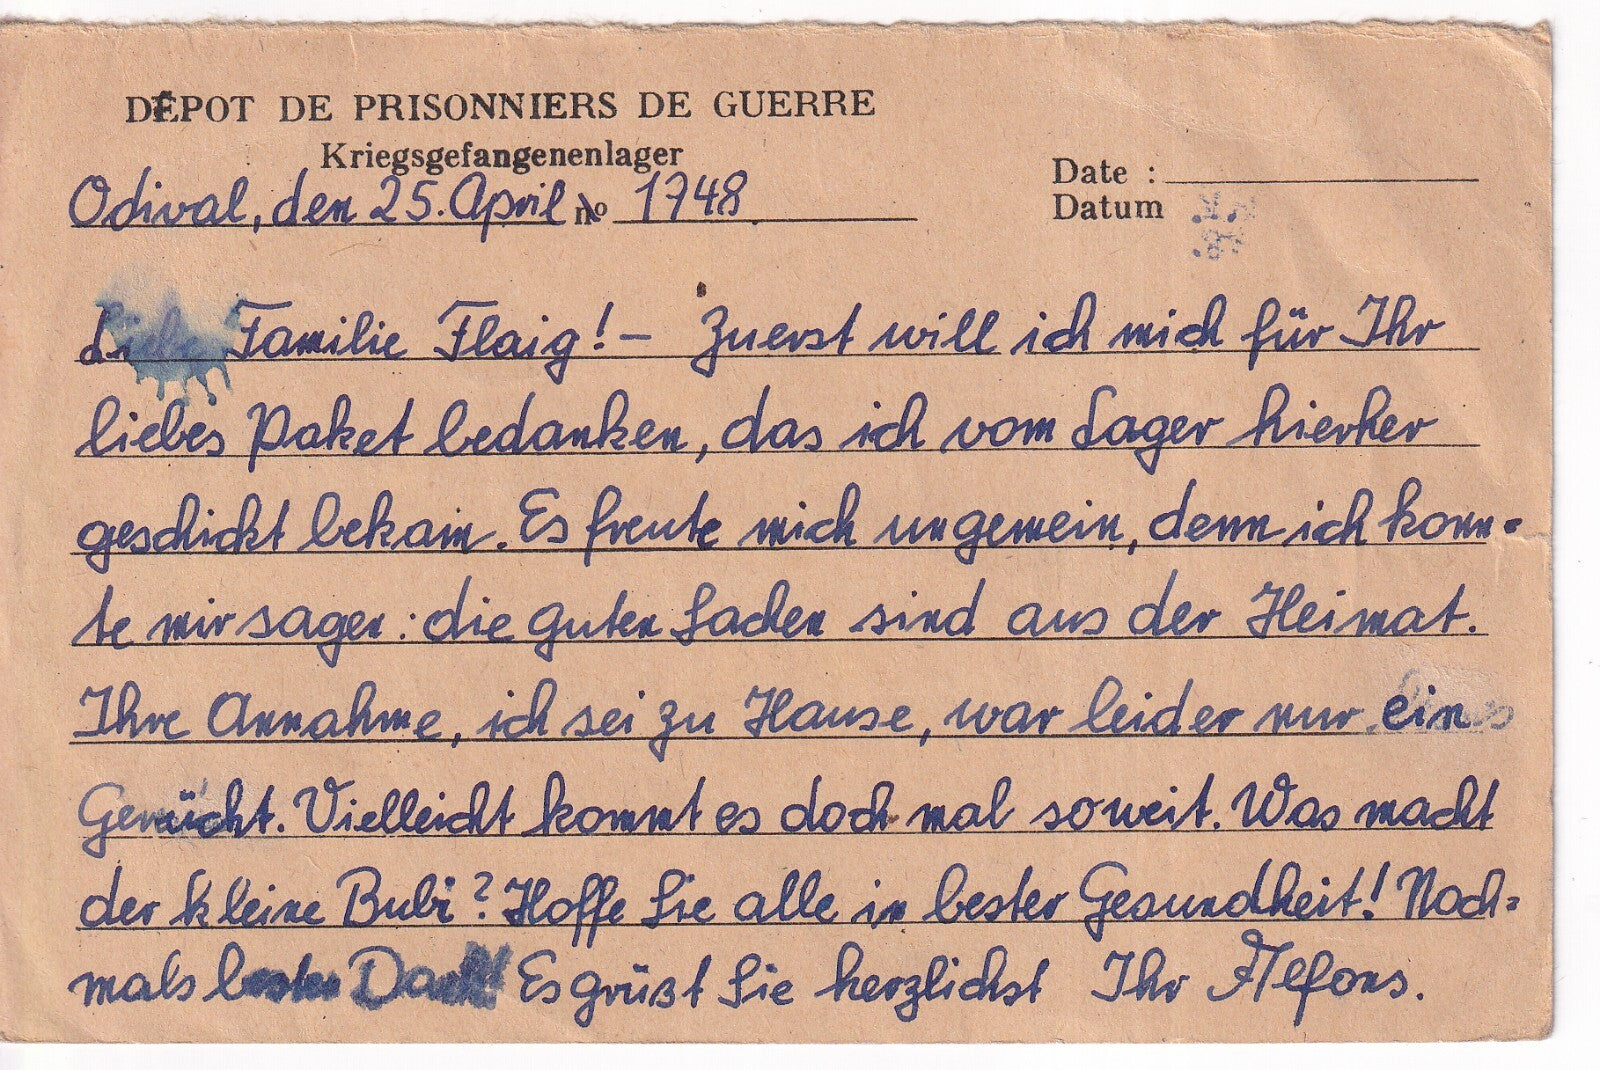 DÉPOT DE PRISONNIERS DE GUERRE
Kriegsgefangenenlager
Odival, den 25. April no 1948
Date :
Datum
Liebe Familie Flaig! – Zuerst will ich mich für Ihr
liebes Paket bedanken, das ich vom Lager hierher
geschickt bekam. Es freute mich ungemein, denn ich konn-
te mir sagen: die guten Sachen sind aus der Heimat.
Ihre Annahme, ich sei zu Hause, war leider nur ein
Gerücht. Vielleicht kommt es doch mal soweit. Was macht
der kleine Bubi? Hoffe Sie alle in bester Gesundheit! Noch-
mals besten Dank! Es grüßt Sie herzlichst Ihr Alfons.